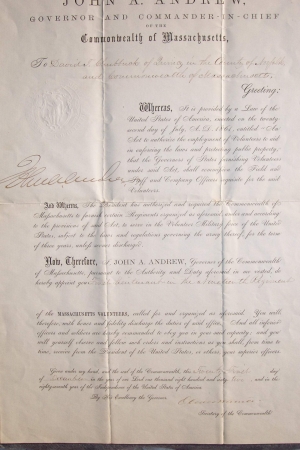 JOHN A. ANDREW,
GOVERNOR AND COMMANDER-IN-CHIEF
OF THE
Commonwealth of Massachusetts,
To David of Quincy in the County of Norfolk
and Commonwealth of Massachusetts,
Greeting:
Whereas, It is provided by a Law of the
United States of America, enacted on the twenty
second day of July, A.D. 1861, entitled "An
Act to authorize the employment of Volunteers to aid
in enforcing the laws and protecting public property,"
that the Governors of States furnishing Volunteers
under said Act, shall commission the Field and
Staff and Company Officers requisite for the said
Volunteers.
And Whereas, The President has authorized and required the Commonwealth of
Massachusetts to furnish certain Regiments organized as aforesaid under and according
to the provisions of said Act, to serve in the Volunteer Military force of the United
States, subject to the laws and regulations governing the army thereof, for the term of
three years, unless sooner discharged.
Now, Therefore, I, JOHN A. ANDREW, Governor of the Commonwealth
of Massachusetts, pursuant to the Authority and Duty aforesaid in me vested, do
hereby appoint you Lieutenant in the Regiment
of the MASSACHUSETTS VOLUNTEERS, called for and organized as aforesaid. You will
therefore, with honor and fidelity discharge the duties of said office. And all inferior
officers and soldiers are hereby commanded to obey you in your said capacity, and you
will yourself observe and follow such orders and instructions as you shall, from time to
time, receive from the President of the United States, or others, your superior officers.
Given under my hand, and the seal of the Commonwealth, this day
of in the year of our Lord one thousand eight hundred and sixty and in the
eighty year of the Independence of the United States of America.
By His Excellency the Governor,
Secretary of the Commonwealth.